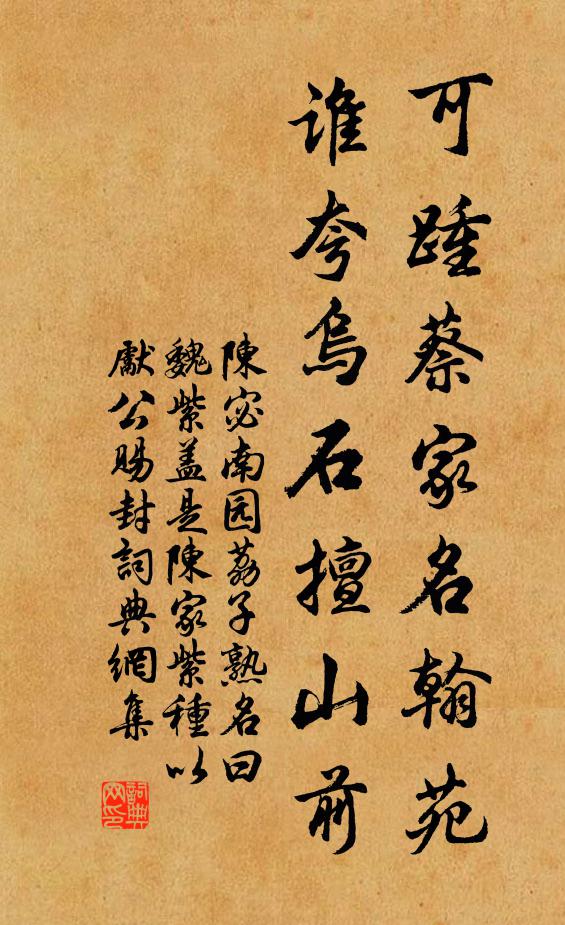 可踵蔡家名翰苑
谁夸烏石擅山前
陳宓南园荔子熟名曰
魏紫盖是陳家紫種以
獻公賜封詞典網集
詞典网印